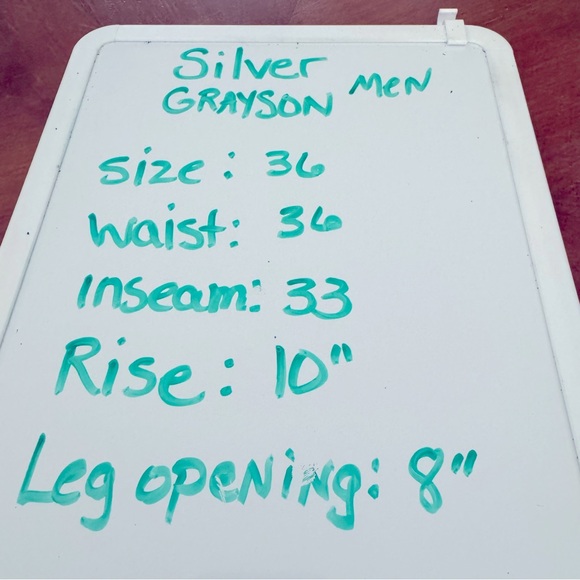 Silver MEN
GRAYSON
Size: 36
Waist: 36
Inseam: 33
Rise: 10"
Leg opening: 8"